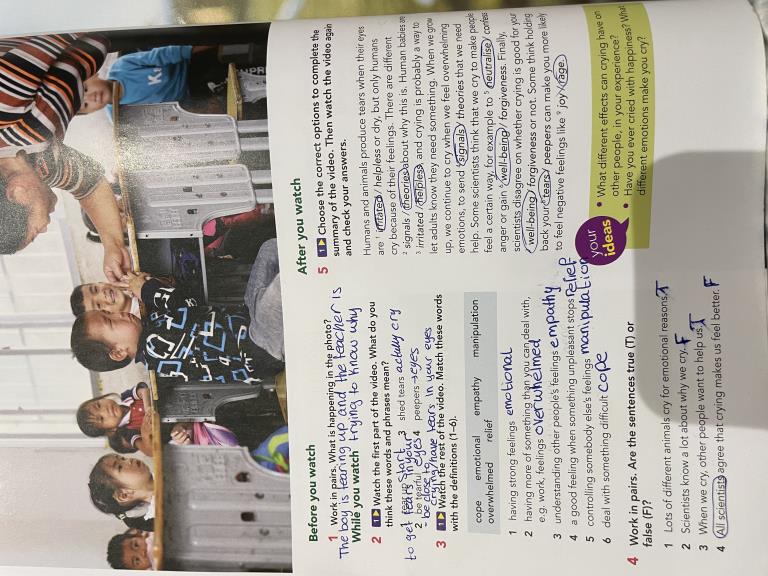 Before you watch
1 Work in pairs. What is happening in the photo?
The boy is tearing up and the teacher is
trying to know why
While you watch
2 Watch the first part of the video. What do you
think these words and phrases mean?
to get tears in your eyes
start
2 be tearful
be close to
crying/have tears in your eyes
3 shed tears actually cry
4 peepers → eyes
3 Watch the rest of the video. Match these words
with the definitions (1–6).
cope emotional empathy manipulation
overwhelmed relief
1 having strong feelings emotional
2 having more of something than you can deal with,
e.g. work, feelings overwhelmed
3 understanding other people's feelings empathy
4 a good feeling when something unpleasant stops relief
5 controlling somebody else's feelings manipulation
6 deal with something difficult cope
4 Work in pairs. Are the sentences true (T) or
false (F)?
1 Lots of different animals cry for emotional reasons. T
2 Scientists know a lot about why we cry. F
3 When we cry, other people want to help us. T
4 All scientists agree that crying makes us feel better. F
After you watch
5 Choose the correct options to complete the
summary of the video. Then watch the video again
and check your answers.
Humans and animals produce tears when their eyes
are 1 irritated / helpless or dry, but only humans
cry because of their feelings. There are different
2 signals / theories about why this is. Human babies are
3 irritated / helpless, and crying is probably a way to
let adults know they need something. When we grow
up, we continue to cry when we feel overwhelming
emotions, to send 4 signals / theories that we need
help. Some scientists think that we cry to make people
feel a certain way, for example to 5 neutralise / confess
anger or gain 6 well-being / forgiveness. Finally,
scientists disagree on whether crying is good for your
7 well-being / forgiveness or not. Some think holding
back your 8 tears / peepers can make you more likely
to feel negative feelings like 9 joy / rage.
your
ideas
• What different effects can crying have on
other people, in your experience?
• Have you ever cried with happiness? What
different emotions make you cry?